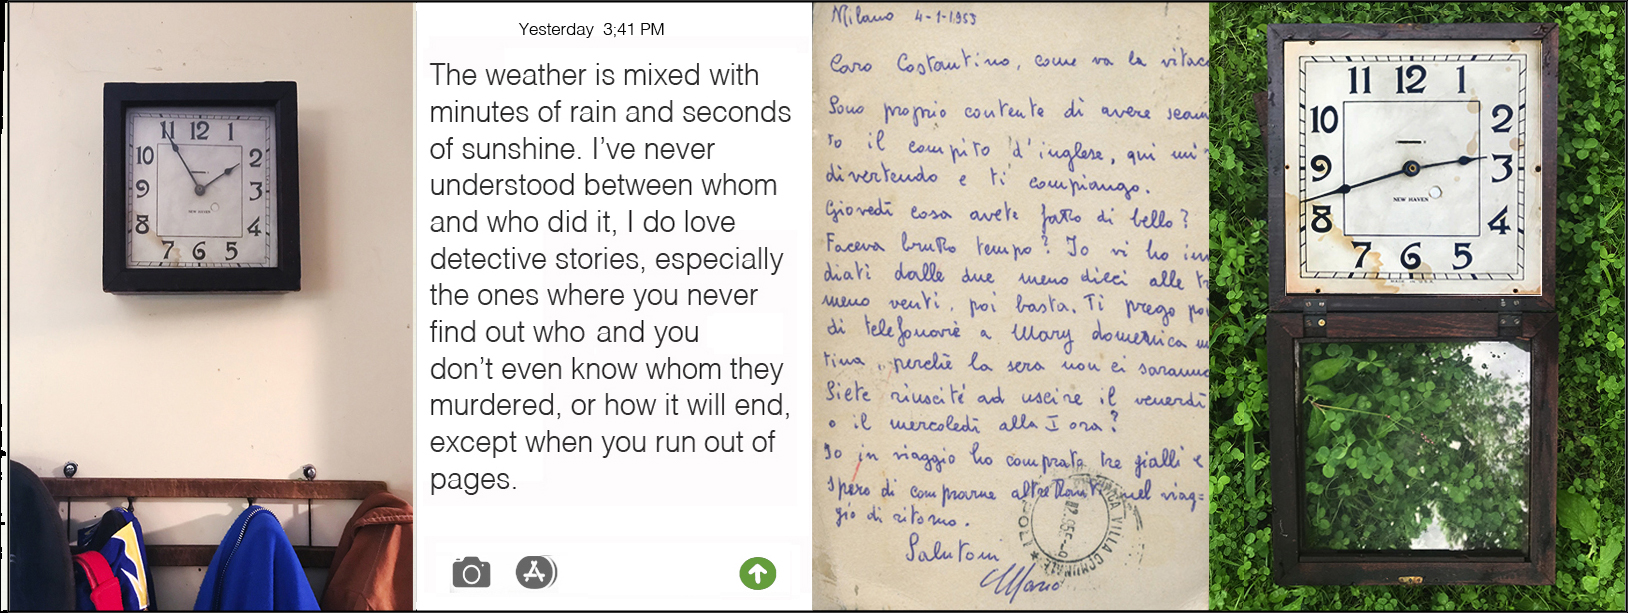 11 12 1
10 2
9 3
NEW HAVEN
8 4
7 6 5
Yesterday 3;41 PM
The weather is mixed with
minutes of rain and seconds
of sunshine. I've never
understood between whom
and who did it, I do love
detective stories, especially
the ones where you never
find out who and you
don't even know whom they
murdered, or how it will end,
except when you run out of
pages.
Milano 4-1-1953
Caro Costantino, come va la vitac
Sono proprio contente di avere scam
to il compito d'inglese, qui mi
divertendo e ti compiango.
Giovedì cosa avete fatto di bello?
Faceva brutto tempo? Io vi ho in
diati dalle due meno dieci alle t
meno venti, poi basta. Ti prego po
di telefonare a Mary domenica m
tina, perchè la sera non ci saranno
Siete riusciti ad uscire il venerdì
o il mercoledì alla I ora?
Io in viaggio ho comprata tre gialli e
spero di comprarne altrettanti nel viag=
gio di ritorno.
Salutoni
Mario
11 12 1
10 2
9 3
NEW HAVEN
8 4
7 6 5
MADE IN U.S.A.